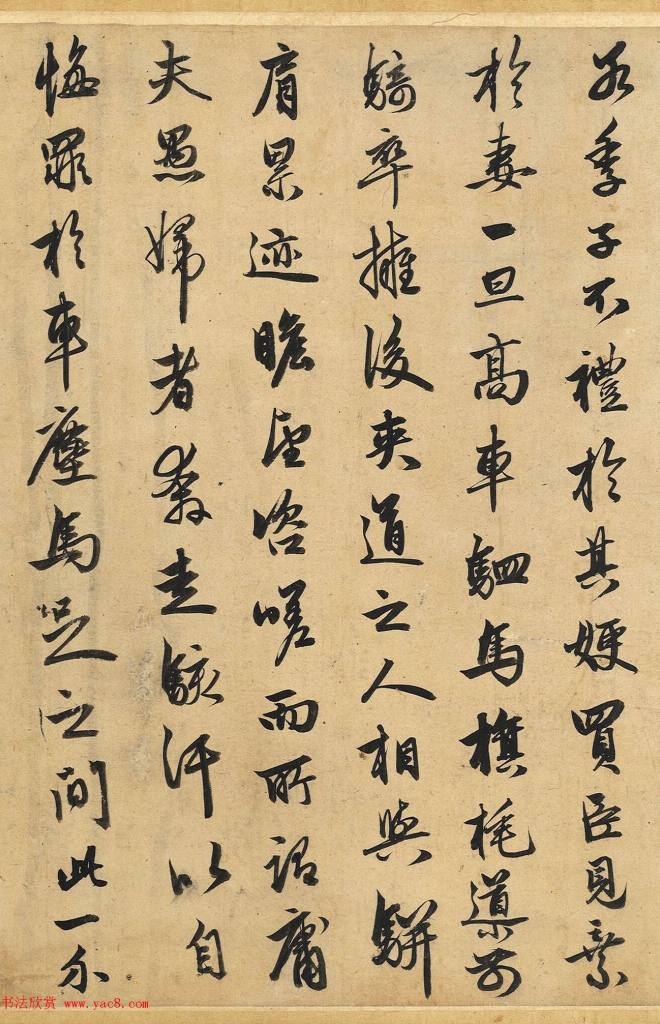 若季子不禮於其嫂買臣見棄
於妻一旦高車駟馬旗旄導前
騎卒擁後夾道之人相與駢
肩累迹瞻望咨嗟而所謂庸
夫愚婦者奔走駭汗以自
悔罪於車塵馬足之間此一介
书法欣赏 www.yac8.com